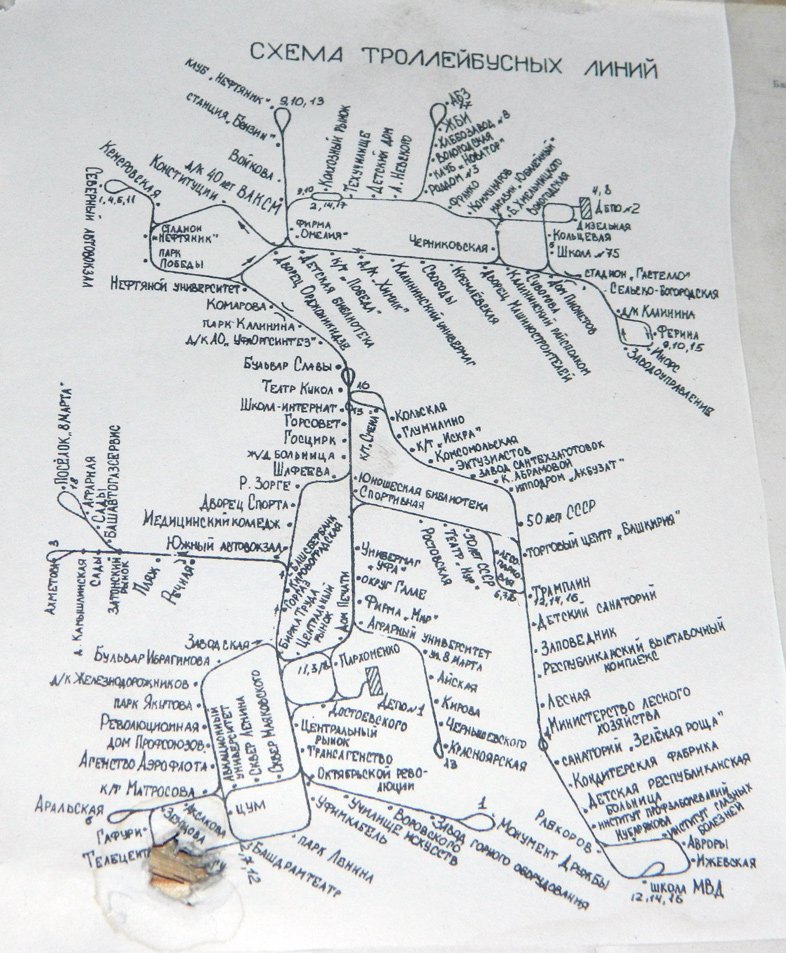 СХЕМА ТРОЛЛЕЙБУСНЫХ ЛИНИЙ
КЛУБ „НЕФТЯНИК“
9,10,13
СТАНЦИЯ „БЕНЗИН“
ВОЙКОВА
Д/К 40 ЛЕТ ВЛКСМ
КОНСТИТУЦИИ
КЕМЕРОВСКАЯ
СЕВЕРНЫЙ АВТОВОКЗАЛ
СТАДИОН
„НЕФТЯНИК“
ПАРК
ПОБЕДЫ
НЕФТЯНОЙ УНИВЕРСИТЕТ
ФИРМА
„ОМЕЛИЯ“
9,10
2,14,17
КОЛХОЗНЫЙ РЫНОК
ТЕХУЧИЛИЩЕ
ДЕТСКИЙ ДОМ
А. НЕВСКОГО
ЖБИ
ХЛЕБОЗАВОД №8
ВОЛОГОДСКАЯ
КЛУБ „НОВАТОР“
РОДДОМ №3
КОММУНАРОВ
Б. ХМЕЛЬНИЦКОГО
4,8
ДЕПО №2
ДИЗЕЛЬНАЯ
КОЛЬЦЕВАЯ
ШКОЛА №75
СТАДИОН „ГАСТЕЛЛО“
СЕЛЬСКО-БОГОРОДСКАЯ
Д/К КАЛИНИНА
ФЕРИНА
9,10,15
ИНОРС
ЗАВОДОУПРАВЛЕНИЯ
ЧЕРНИКОВСКАЯ
ДВОРЕЦ ОРДЖОНИКИДЗЕ
ДЕТСКАЯ БИБЛИОТЕКА
К/Т „ПОБЕДА“
Д/К „ХИМИК“
КАЛИНИНСКИЙ УНИВЕРМАГ
СВОБОДЫ
КРЕМЛЁВСКАЯ
ДВОРЕЦ МАШИНОСТРОИТЕЛЕЙ
КАЛИНИНСКИЙ РАЙИСПОЛКОМ
СУВОРОВА
ДОМ ПИОНЕРОВ
КОМАРОВА
ПАРК КАЛИНИНА
Д/К АО „УФАОРГСИНТЕЗ“
БУЛЬВАР СЛАВЫ
ТЕАТР КУКОЛ
16
ШКОЛА-ИНТЕРНАТ
ГОРСОВЕТ
ГОСЦИРК
Ж/Д БОЛЬНИЦА
ШАФЕЕВА
Р. ЗОРГЕ
ДВОРЕЦ СПОРТА
МЕДИЦИНСКИЙ КОЛЕДЖ
ЮЖНЫЙ АВТОВОКЗАЛ
К/Т „СМЕНА“
КОЛЬСКАЯ
ГЛУМИЛИНО
К/Т „ИСКРА“
КОМСОМОЛЬСКАЯ
ЭКТУЗИАСТОВ
ЗАВОД САНТЕХЗАГОТОВОК
К. АБРАМОВОЙ
ИППОДРОМ „АКБУЗАТ“
50 ЛЕТ СССР
ТОРГОВЫЙ ЦЕНТР „БАШКИРИЯ“
ТРАМПЛИН
12,14,16
ДЕТСКИЙ САНАТОРИЙ
ЗАПОВЕДНИК
РЕСПУБЛИКАНСКИЙ ВЫСТАВОЧНЫЙ
КОМПЛЕКС
ЛЕСНАЯ
МИНИСТЕРСТВО ЛЕСНОГО
ХОЗЯЙСТВА
САНАТОРИЙ „ЗЕЛЁНАЯ РОЩА“
КОНДИТЕРСКАЯ ФАБРИКА
ДЕТСКАЯ РЕСПУБЛИКАНСКАЯ
БОЛЬНИЦА
ИНСТИТУТ ПРОФЗАБОЛЕВАНИЙ
КУВАРЯКОВА
ИНСТИТУТ ГЛАЗНЫХ
БОЛЕЗНЕЙ
АВРОРЫ
ИЖЕВСКАЯ
РАБКОРОВ
ШКОЛА МВД
12,14,16
ЮНОШЕСКАЯ БИБЛИОТЕКА
СПОРТИВНАЯ
РОСТОВСКАЯ
ТЕАТР „НУР“
50 ЛЕТ СССР
УНИВЕРМАГ
„УФА“
ОКРУГ ГАЛЛЕ
ФИРМА „МИР“
АГРАРНЫЙ УНИВЕРСИТЕТ
УЛ. 8 МАРТА
АЙСКАЯ
КИРОВА
ЧЕРНЫШЕВСКОГО
КРАСНОЯРСКАЯ
13
ДОМ ПЕЧАТИ
КИРОВОГРАДСКАЯ
БИРЖА ТРУДА
ЦЕНТРАЛЬНЫЙ
РЫНОК
ПОСЁЛОК „8 МАРТА“
18
АГРАРНАЯ
САДЫ
БАШАВТОГАЗСЕРВИС
АХМЕТОВА
3
Д. КАМЫШЛИНСКАЯ
САДЫ
ЗАТОНСКИЙ
РЫНОК
ПЛЯЖ
РЕЧНАЯ
ЗАВОДСКАЯ
БУЛЬВАР ИБРАГИМОВА
Д/К ЖЕЛЕЗНОДОРОЖНИКОВ
ПАРК ЯКУТОВА
РЕВОЛЮЦИОННАЯ
ДОМ ПРОФСОЮЗОВ
АГЕНСТВО АЭРОФЛОТА
К/Т МАТРОСОВА
АРАЛЬСКАЯ
6
ГАФУРИ
АКСАКОВА
АВИАЦИОННЫЙ
УНИВЕРСИТЕТ
СКВЕР ЛЕНИНА
СКВЕР МАЯКОВСКОГО
ЦУМ
ПАРХОМЕНКО
ДЕПО №1
ДОСТОЕВСКОГО
ЦЕНТРАЛЬНЫЙ
РЫНОК
ТРАНСАГЕНСТВО
ОКТЯБРЬСКОЙ РЕВО-
ЛЮЦИИ
УФИМКАБЕЛЬ
УЧИЛИЩЕ ИСКУССТВ
ВОРОВСКОГО
ЗАВОД ГОРНОГО ОБОРУДОВАНИЯ
1
МОНУМЕНТ ДРУЖБЫ
ПАРК ЛЕНИНА
БАШДРАМТЕАТР